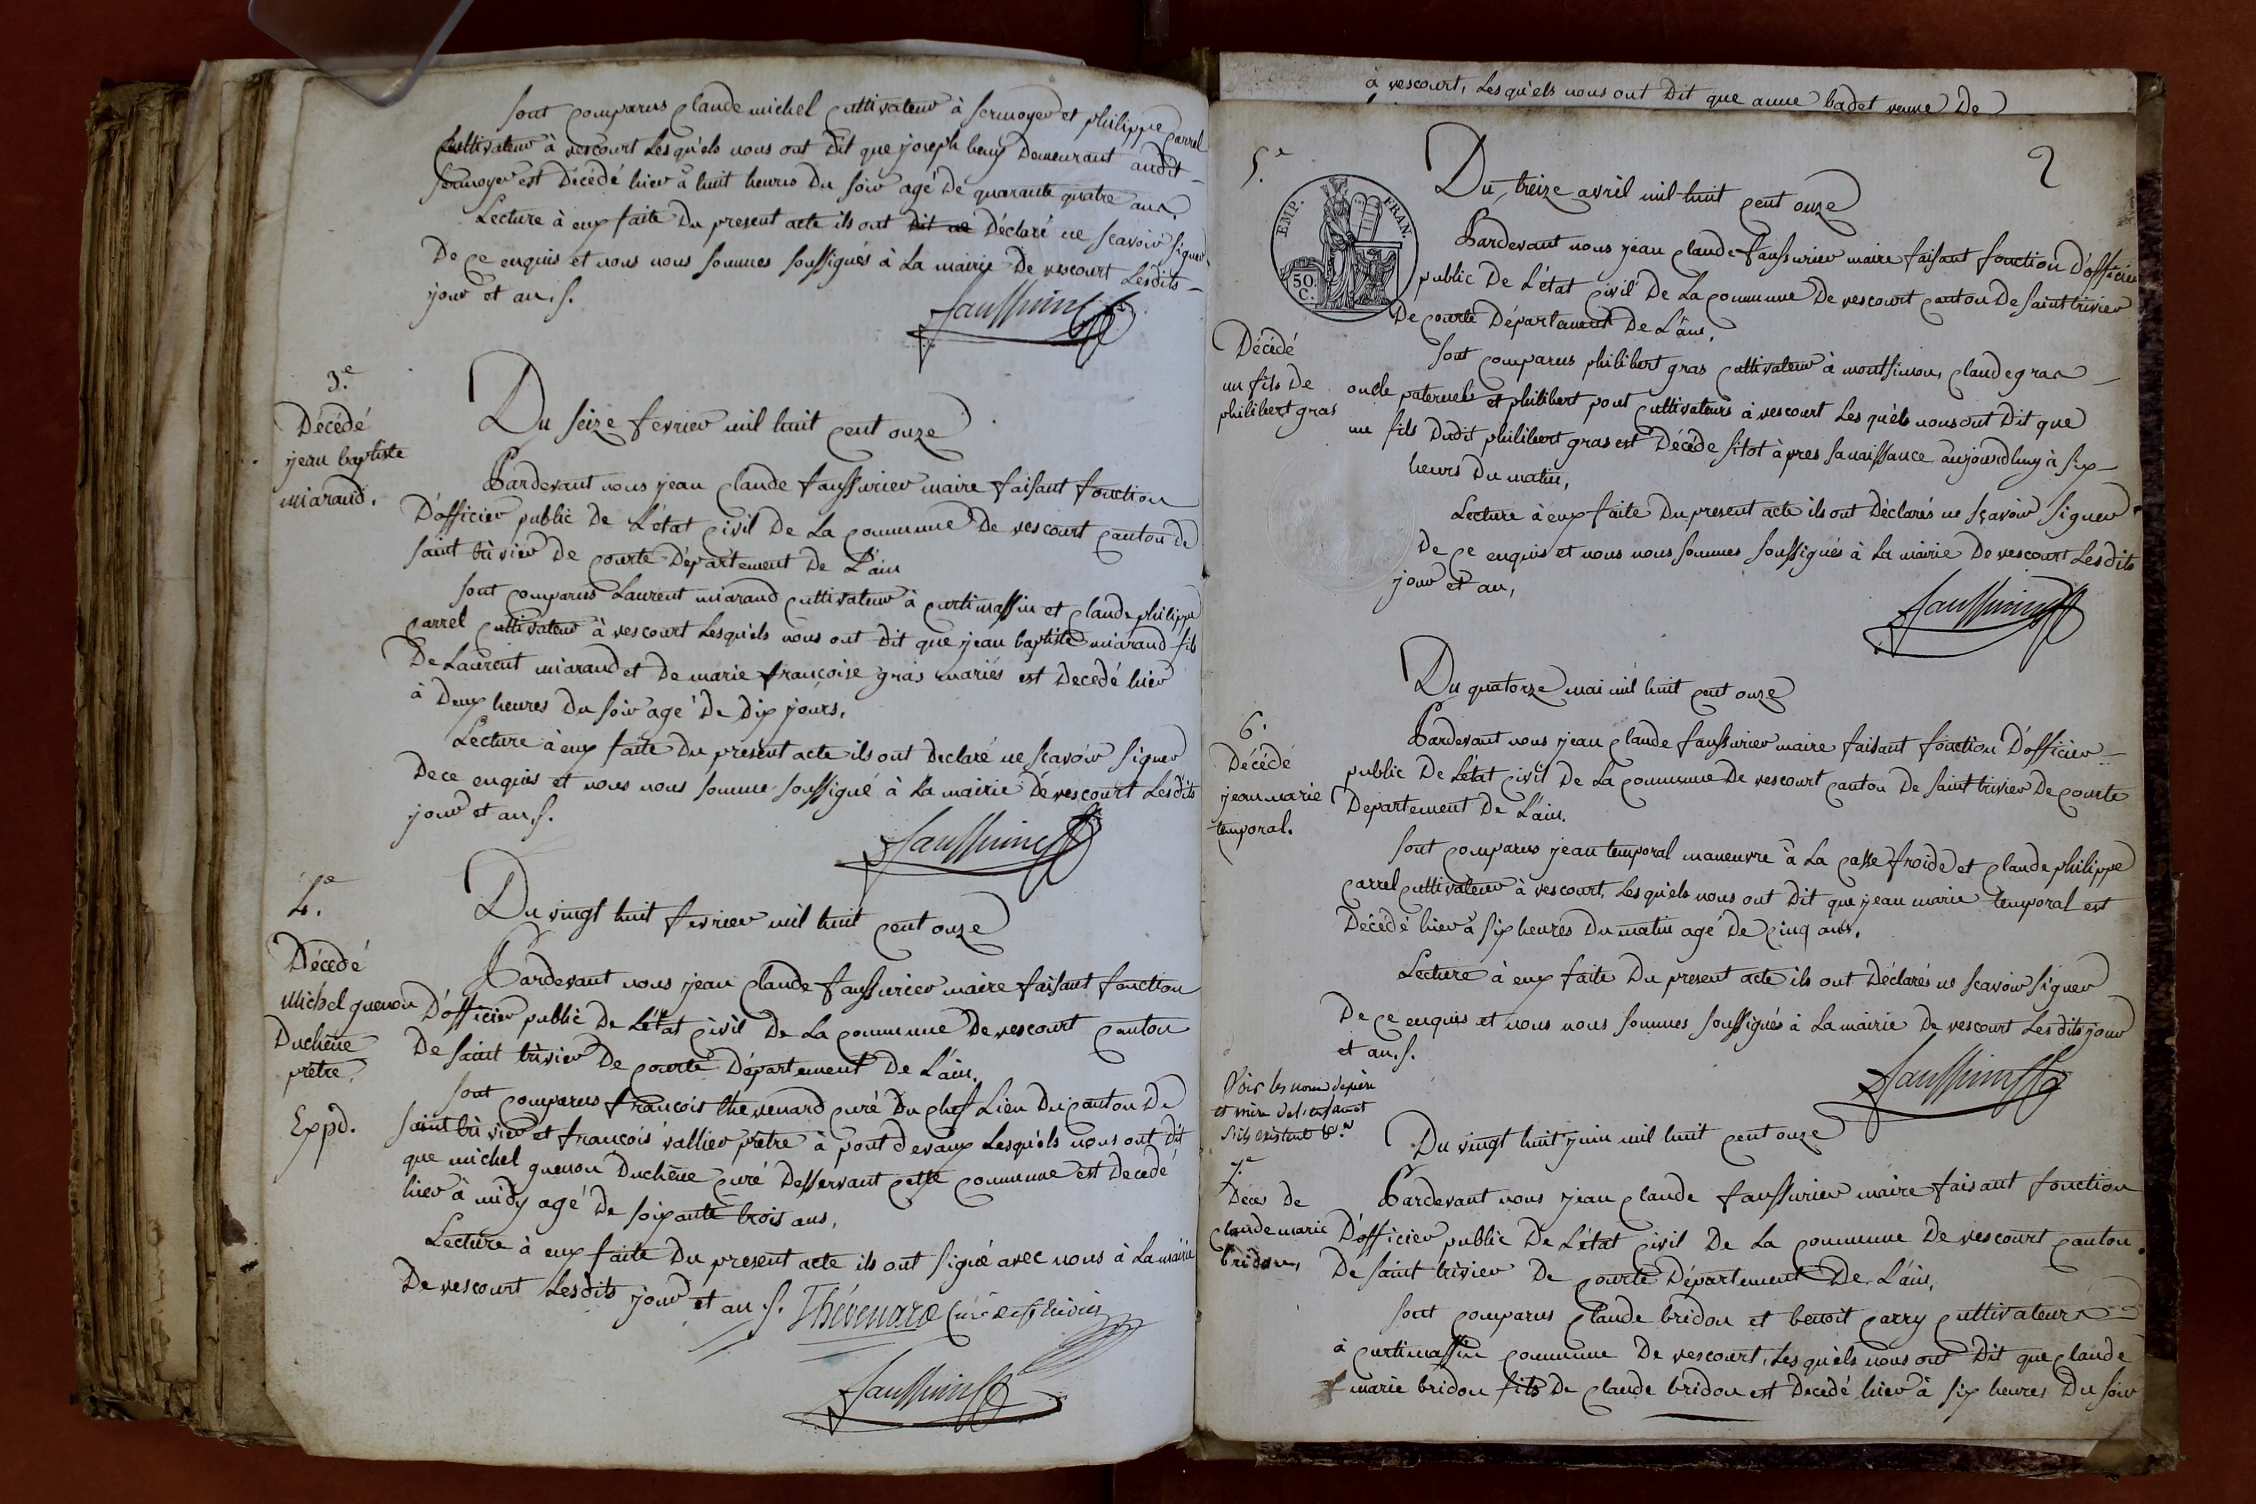 sont comparus claude michel cultivateur à sermoyer et philippe carrel
cultivateur à vescourt Lesquéls nous ont dit que joseph Demeurant audit
sermoyer est Décédé hier à huit heures Du soir agé De quarante quatre ans.
Lecture à eux faite Du present acte ils ont dit ne Déclaré ne scavoir signer
De ce enquis et nous nous sommes soussignés à La mairie De vescourt Lesdits
jour et an.
3.e
Décédé
jean baptiste
miaraud.
Du seize fevrier mil huit cent onze
Pardevant nous jean claude faussurier maire faisant fonction
D'officier public De L'état civil De La commune De vescourt canton de
saint trivier De courte Département De L'ain
sont comparus Laurent miaraud cultivateur à curtimassin et claude philippe
carrel cultivateur à vescourt Lesquels nous ont dit que jean baptiste miaraud fils
De Laurent miaraud et De marie françoise gras mariés est Decedé hier
à Deux heures Du soir agé De Dix jours.
Lecture à eux faite Du present acte ils ont Declaré ne scavoir signer
De ce enquis et nous nous somme soussigné à La mairie De vescourt Lesdits
jour et an.
4.e
Décédé
Michel guenon
Duchêne
prêtre.
Expd.
Du vingt huit fevrier mil huit cent onze
Pardevant nous jean claude faussurier maire faisant fonction
D'officier public De L'état civil De La commune De vescourt canton
De saint trivier De courte Département De L'ain.
sont comparus françois thevenard curé Du chef Lieu Du canton De
saint trivier et françois vallier prêtre à pont devaux Lesquéls nous ont Dit
que michel guenon Duchêne curé Desservant cette commune est Decedé
hier à midy agé De soixante trois ans.
Lecture à eux faite Du present acte ils ont signé avec nous à La mairie
De vescourt Lesdits jour et an. Thévenard curé de St trivier
à vescourt, Lesquéls nous ont Dit que anne badet veuve De
5.e
2
EMP. FRAN.
50 C.
Du treize avril mil huit cent onze
Pardevant nous jean claude faussurier maire faisant fonction D'officier
public De L'état civil De La commune De vescourt canton De saint trivier
De courte Département De L'ain.
Décédé
un fils De
philibert gras
sont comparus philibert gras cultivateur à montsimon, claude gras
oncle paternel et philibert pont cultivateurs à vescourt Lesquéls nous ont Dit que
un fils Dudit philibert gras est Décédé sitot après sa naissance aujourdhuy à six
heures Du matin,
Lecture à eux faite Du present acte ils ont Déclarés ne sçavoir signer
De ce enquis et nous nous sommes soussignés à La mairie De vescourt Lesdits
jour et an,
Du quatorze mai mil huit cent onze
6.e
Décédé
jean marie
temporal.
Pardevant nous jean claude faussurier maire faisant fonction D'officier
public De L'état civil De La commune De vescourt canton De saint trivier De courte
Département De L'ain.
sont comparus jean temporal maneuvre à La casse froide et claude philippe
carrel cultivateur à vescourt, Lesquéls nous ont Dit que jean marie temporal est
Décédé hier à six heures Du matin agé De cinq ans.
Lecture à eux faite Du present acte ils ont Déclarés ne scavoir signer
De ce enquis et nous nous sommes soussignés à La mairie De vescourt Lesdits jour
et an.
Voir les noms de père
et mère de l'enfant
s'ils existent
Du vingt huit juin mil huit cent onze
7.e
Décès De
claude marie
bridon,
Pardevant nous jean claude faussurier maire faisant fonction
D'officier public De L'état civil De La commune De vescourt canton
De saint trivier De courte Département De L'ain,
sont comparus claude bridon et benoit carry cultivateurs
à curtimassin commune De vescourt, Lesquéls nous ont Dit que claude
marie bridon fils De claude bridon est Decedé hier à six heures Du soir